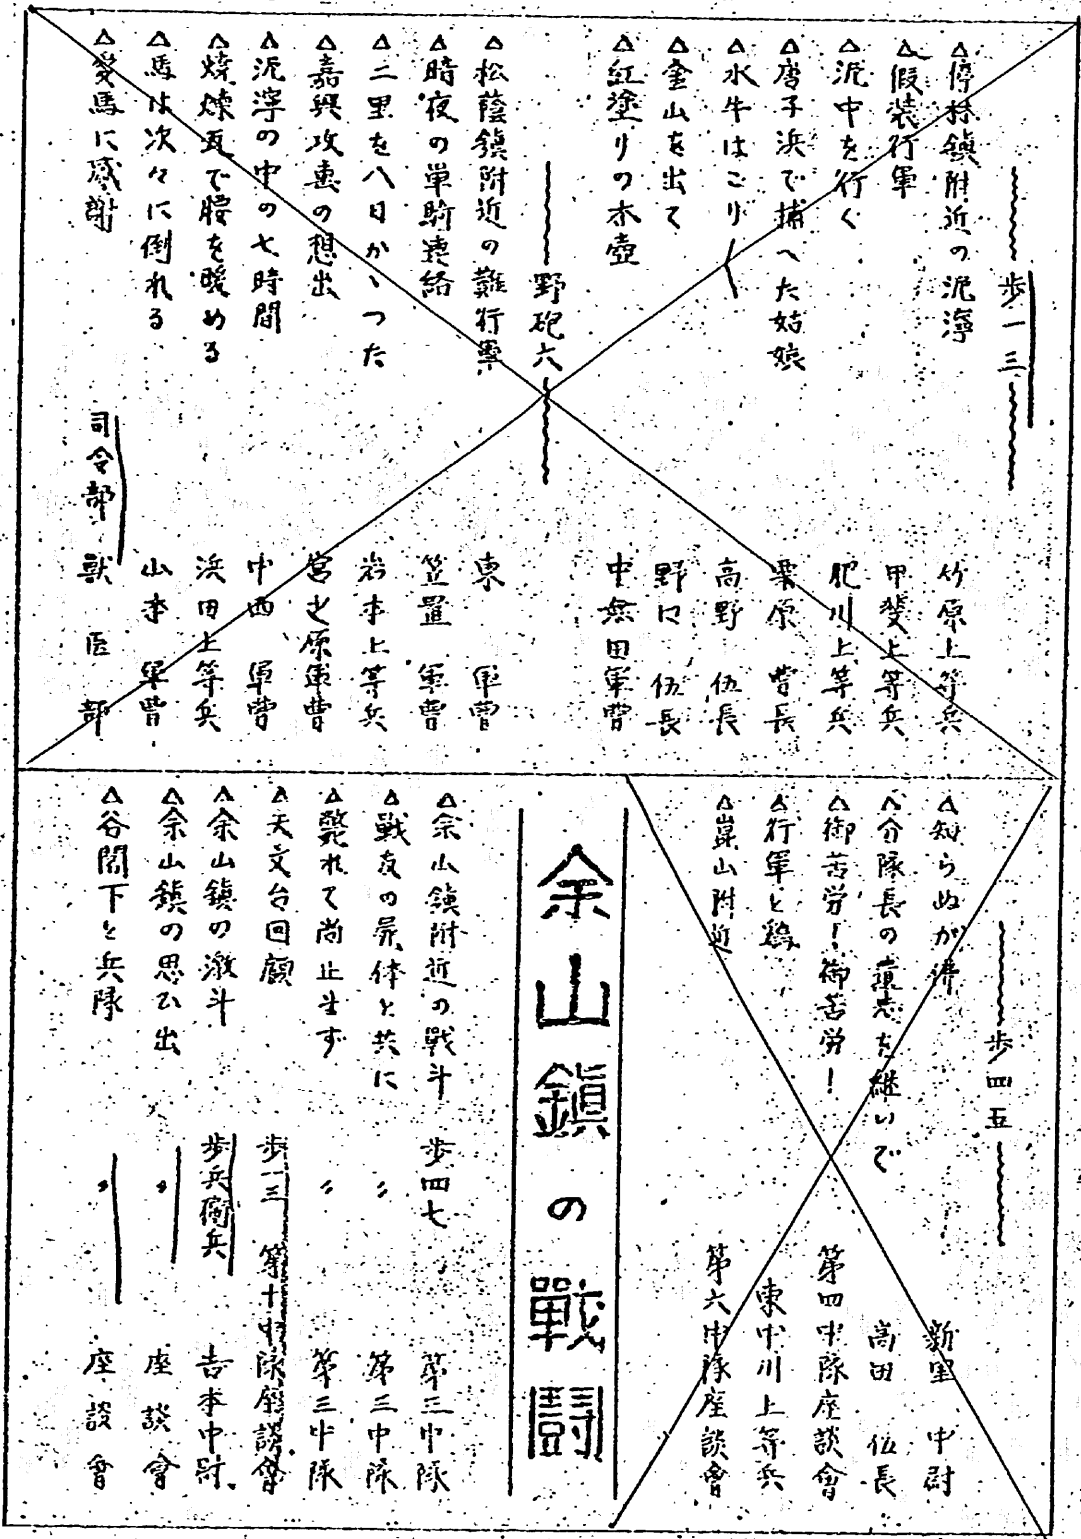 歩一三
△停林鎮附近の泥濘 竹原上等兵
△假装行軍 甲斐上等兵
△泥中を行く 肥川上等兵
△唐子浜で捕へた姑娘 栗原曹長
△水牛はこり〱 高野伍長
△金山を出て 野口伍長
△紅塗りの木壺 中無田軍曹
野砲六
△松蔭鎮附近の難行軍 東軍曹
△暗夜の単騎連絡 笠置軍曹
△二里を八日かゝつた 岩本上等兵
△嘉興攻撃の想出 宮之原軍曹
△泥濘の中の七時間 中西軍曹
△焼煉瓦で腰を暖める 浜田上等兵
△馬は次々に倒れる 山本軍曹
△愛馬に感謝 司令部 獣医部
歩四五
△知らぬが佛 新里中尉
△分隊長の遺志を継いで 高田伍長
△御苦労!御苦労! 第四中隊座談會
△行軍と鶏 東中川上等兵
△崑山附近 第六中隊座談會
余山鎮の戰鬪
△余山鎮附近の戰斗 歩四七 第三中隊
△戦友の屍体と共に 〃 第三中隊
△斃れて尚止まず 〃 第三中隊
△天文台回顧 歩一三 第十中隊座談會
△余山鎮の激斗 歩兵衛兵 吉本中尉
△余山鎮の思ひ出 〃 座談會
△谷閣下と兵隊 〃 座談會